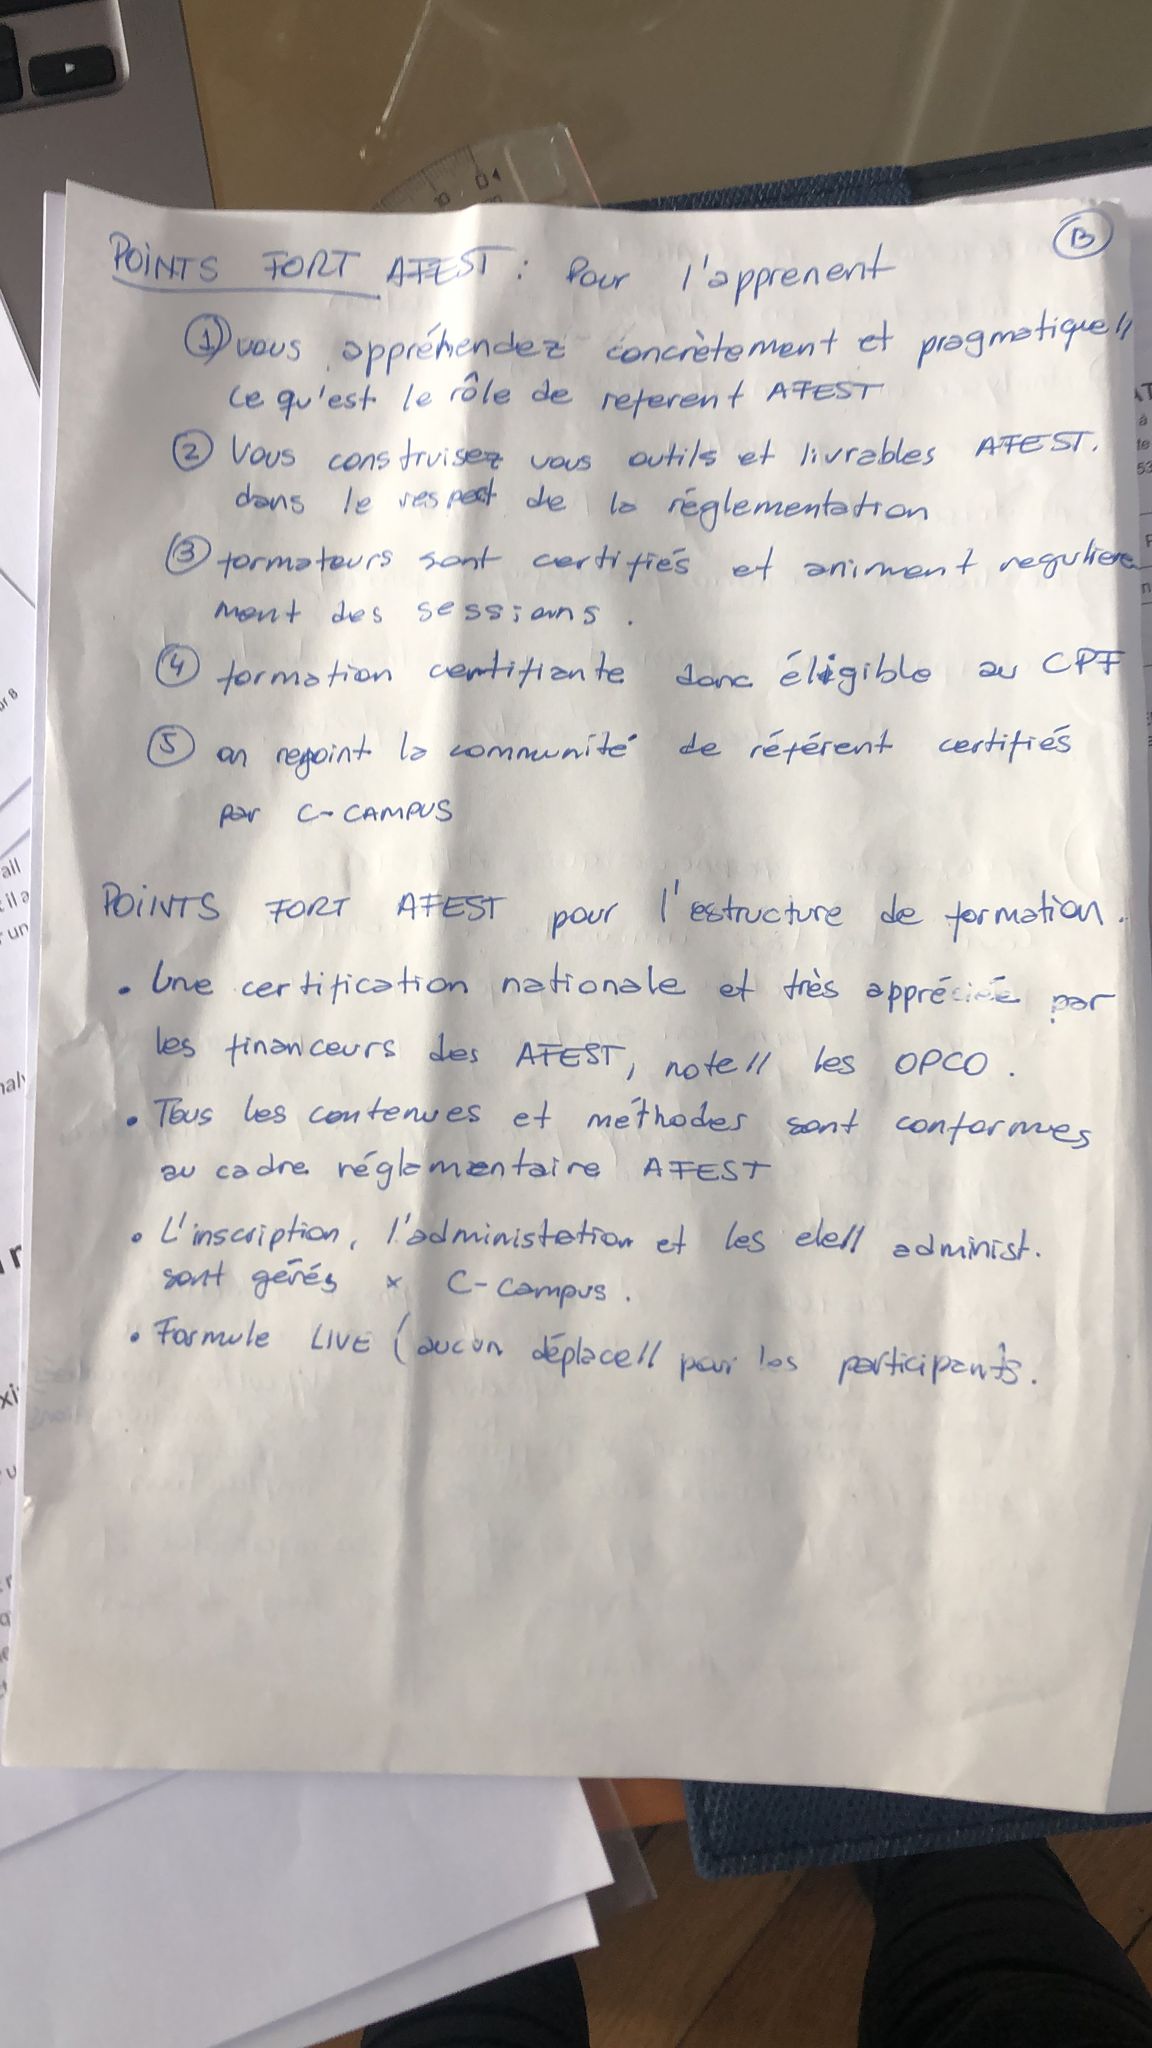 B
POINTS FORT AFEST : Pour l'apprenent
1) vous appréhendez concrètement et pragmatique//
ce qu'est le rôle de referent AFEST
2 Vous construisez vous outils et livrables AFEST.
dans le respect de la réglementation
3 formateurs sont certifiés et animent reguliere
ment des sessions.
4 formation certifiante donc éligible au CPF
5 on rejoint la communité de référent certifiés
par C-CAMPUS
POIINTS FORT AFEST pour l'estructure de formation.
• Une certification nationale et très appréciée par
les financeurs des AFEST, note// les OPCO.
• Tous les contenues et méthodes sont conformes
au cadre réglamentaire AFEST
• L'inscription, l'administation et les ele// administ.
sont gérés x C-Campus.
• Formule LIVE (aucun déplace// pour les participants.